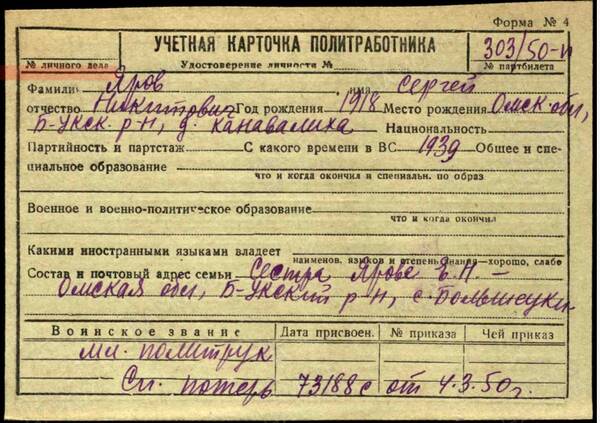 Форма № 4
УЧЕТНАЯ КАРТОЧКА ПОЛИТРАБОТНИКА 303/50-п
№ личного дела Удостоверение личности № № партбилета
Фамилия Яров имя Сергей
отчество Никитович Год рождения 1918 Место рождения Омск. обл,
Б-Укск. р-н, д. Канавалиха Национальность
Партийность и партстаж С какого времени в ВС 1939 Общее и спе-
циальное образование
что и когда окончил и специальн. по образ
Военное и военно-политическое образование
что и когда окончил
Какими иностранными языками владеет
наименов. языков и степень знания—хорошо, слабо
Состав и почтовый адрес семьи Сестра Ярова Е.Н. –
Омская обл, Б-Укский р-н, с. Большеуки
Воинское звание Дата присвоен. № приказа Чей приказ
мл. политрук
Сп. потерь 73188с от 4.3.50г.